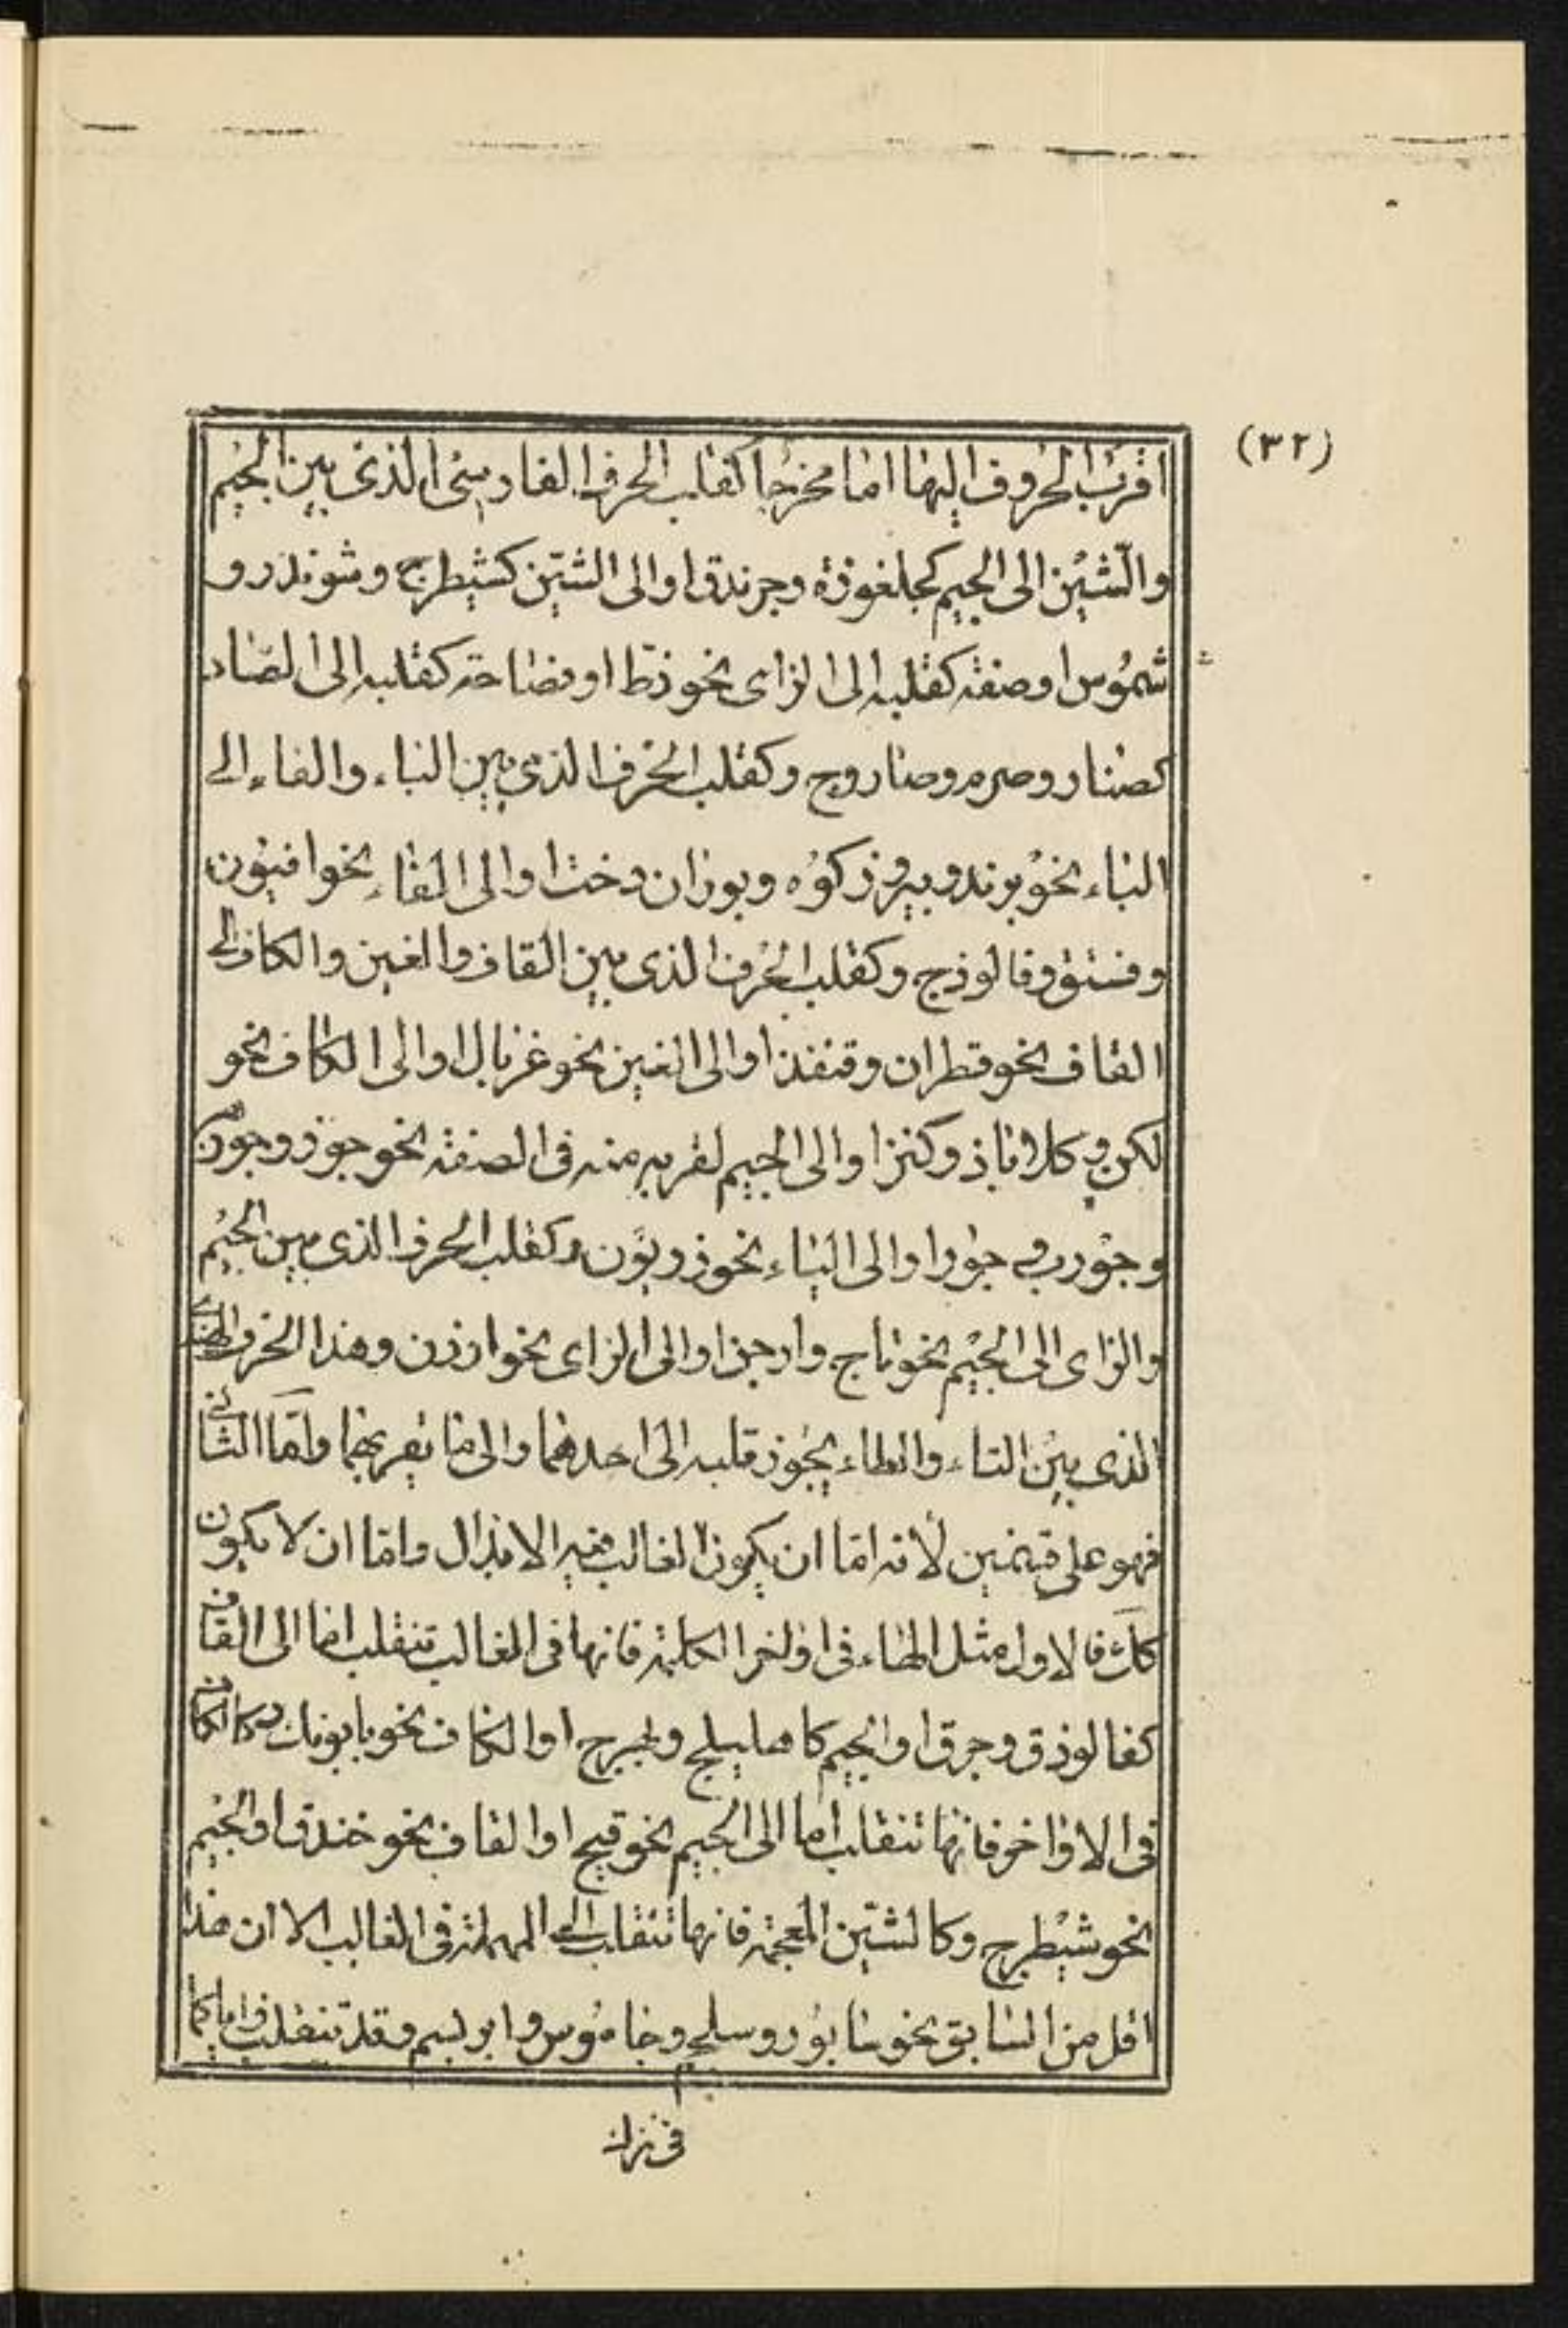 (٣٢)
اقرب الحروف اليها اما مخرجا كقلب الحرف الفارسي الذي بين الجيم
والشين الى الجيم كجلغوزة وجرندق او الى الشين كشيطرج وشوندر و
شموس او صفة كقلبه الى الزاى نحو زط او فصاحة كقلبه الى الصاد
كصنار وصرم وصاروج وكقلب الحرف الذي بين الباء والفاء الى
الباء نحو برند وبيروزكوه وبوران دخت او الى الفاء نحو افيون
وفستق وفالوذج وكقلب الحرف الذي بين القاف والغين والكاف الى
القاف نحو قطران وقنفذ او الى الغين نحو غربال او الى الكاف نحو
لكن وكلاباذ وكنز او الى الجيم لقربه منه في الصفة نحو جوز وجون
وجورب وجور او الى الياء نحو زريون وكقلب الحرف الذي بين الجيم
والزاى الى الجيم نحو تاج وارجن او الى الزاى نحو ارزن وهذا الحرف الهندي
الذي بين التاء والطاء يجوز قلبه الى احدهما والى ما يقربهما واما الثاني
فهو على قسمين لأنه اما ان يكون الغالب فيه الابدال واما ان لا يكون
كك فالاول مثل الهاء في اواخر الكلمة فانها في الغالب تنقلب اما الى القاف
كفالوذق وجرق او الجيم كاهليلج و او الكاف نحو بابونك وكالكاف
في الاواخر فانها تنقلب اما الى الجيم نحو قبج او القاف نحو خندق او الجيم
نحو شيطرج وكالشين المعجمة فانها تنقلب الى المهملة في الغالب الا ان هذا
اقل من السابق نحو سابور وسلجم وجاموس وابريسم وقد تنقلب زايا كما
في نزل